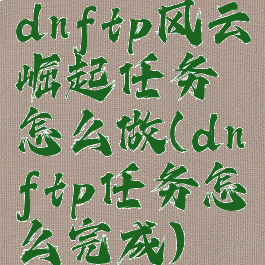 dnftp风云
崛起任务
怎么做(dn
ftp任务怎
么完成)